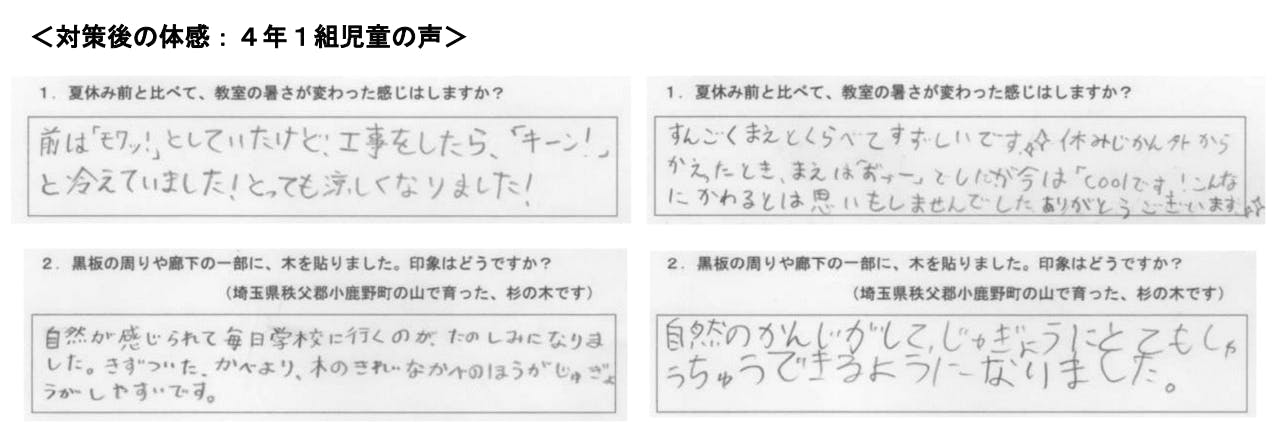 ＜対策後の体感：４年１組児童の声＞
1．夏休み前と比べて、教室の暑さが変わった感じはしますか？
前は「モワッ!」としていたけど、工事をしたら、「キーン!」
と冷えていました!とっても涼しくなりました!
2．黒板の周りや廊下の一部に、木を貼りました。印象はどうですか？
（埼玉県秩父郡小鹿野町の山で育った、杉の木です）
自然が感じられて毎日学校に行くのが、たのしみになりま
した。きずついた、かべより、木のきれいなかべのほうがじゅぎょ
うがしやすいです。
1．夏休み前と比べて、教室の暑さが変わった感じはしますか？
すんごくまえとくらべてすずしいです。☆休みじかん外から
かえったとき、まえは「」でしたが今は「coolです!こんな
にかわるとは思いもしませんでしたありがとうございます☆
2．黒板の周りや廊下の一部に、木を貼りました。印象はどうですか？
（埼玉県秩父郡小鹿野町の山で育った、杉の木です）
自然のかんじがして、じゅぎょうにとてもしゅ
うちゅうできるようになりました。